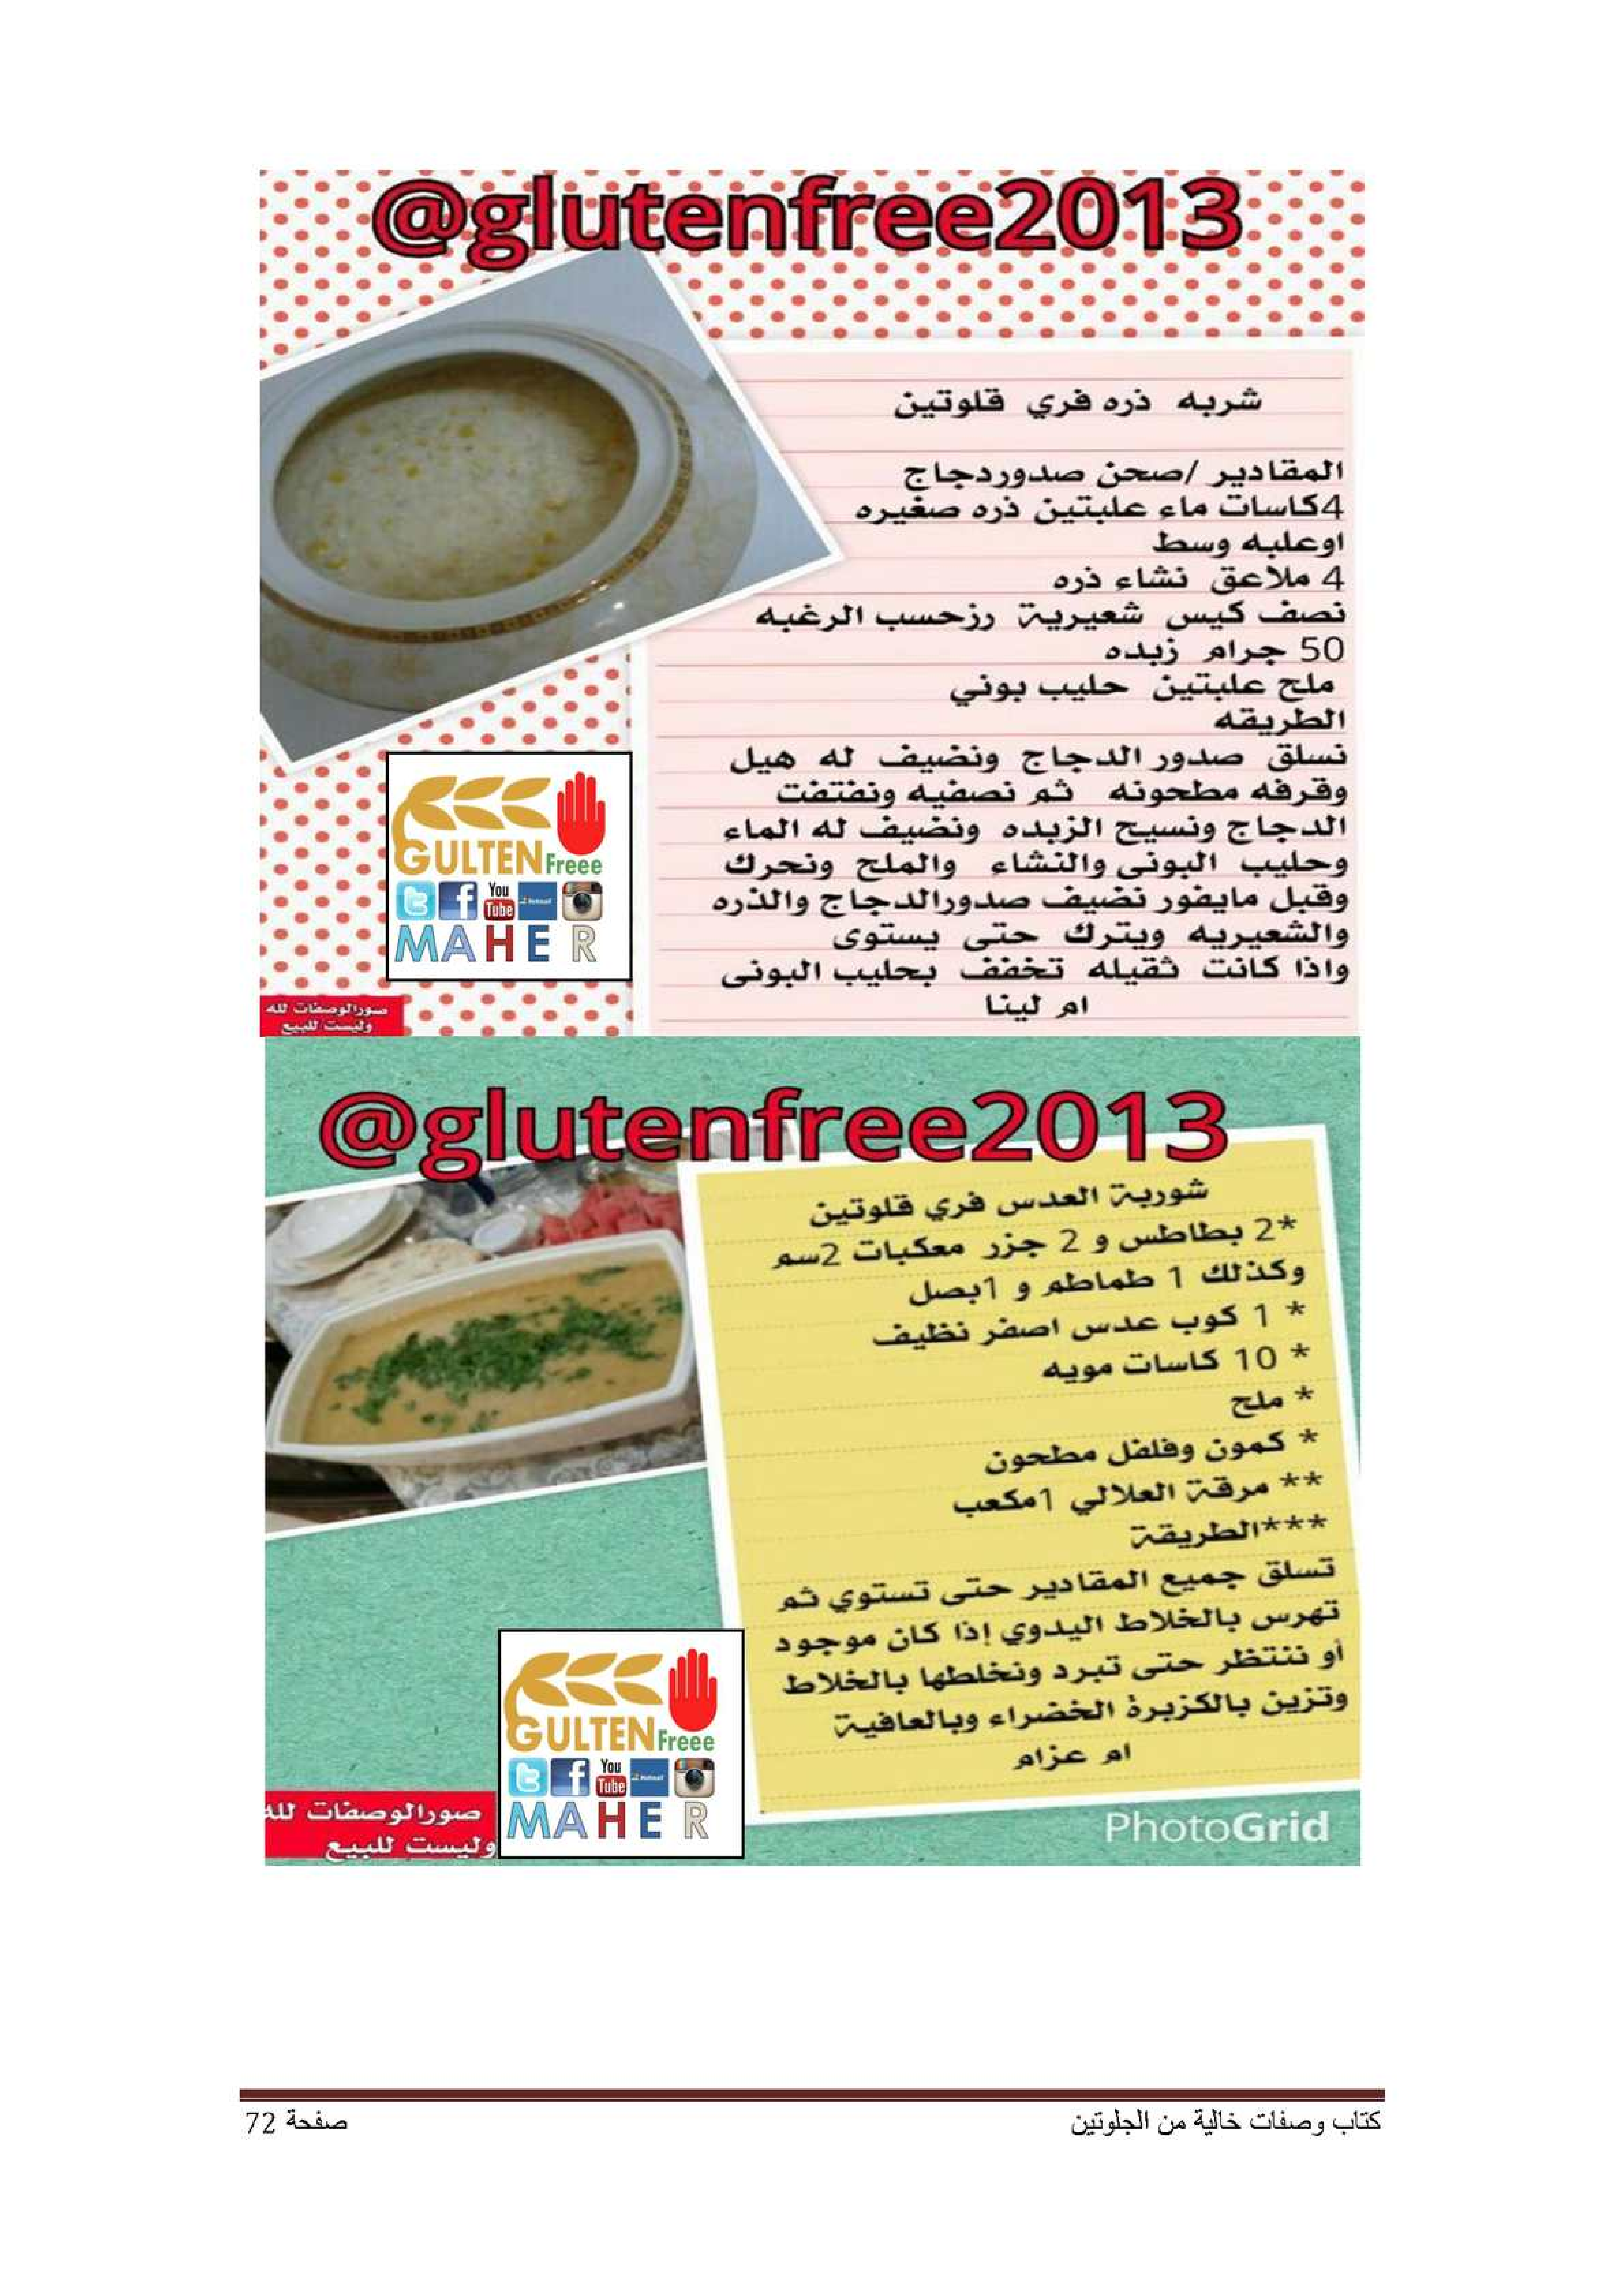 @glutenfree2013
شربه ذره فري قلوتين
المقادير /صحن صدوردجاج
4كاسات ماء علبتين ذره صغيره
اوعلبه وسط
4 ملاعق نشاء ذره
نصف كيس شعيرية رزحسب الرغبه
50 جرام زبده
ملح علبتين حليب بوني
الطريقه
نسلق صدور الدجاج ونضيف له هيل
وقرفه مطحونه ثم نصفيه ونفتفت
الدجاج ونسيح الزبده ونضيف له الماء
وحليب البونى والنشاء والملح ونحرك
وقبل مايفور نضيف صدورالدجاج والذره
والشعيريه ويترك حتى يستوى
واذا كانت ثقيله تخفف بحليب البونى
ام لينا
GULTENFreee
You
Tube
MAHER
صورالوصفات لله
وليست للبيع
@glutenfree2013
شوربة العدس فري قلوتين
*2 بطاطس و 2 جزر معكبات 2سم
وكذلك 1 طماطم و 1بصل
* 1 كوب عدس اصفر نظيف
* 10 كاسات مويه
* ملح
* كمون وفلفل مطحون
** مرقة العلالي 1مكعب
***الطريقة
تسلق جميع المقادير حتى تستوي ثم
تهرس بالخلاط اليدوي إذا كان موجود
أو ننتظر حتى تبرد ونخلطها بالخلاط
وتزين بالكزبرة الخضراء وبالعافية
ام عزام
GULTENFreee
You
Tube
MAHER
صورالوصفات لله
وليست للبيع
PhotoGrid
كتاب وصفات خالية من الجلوتين
صفحة 72